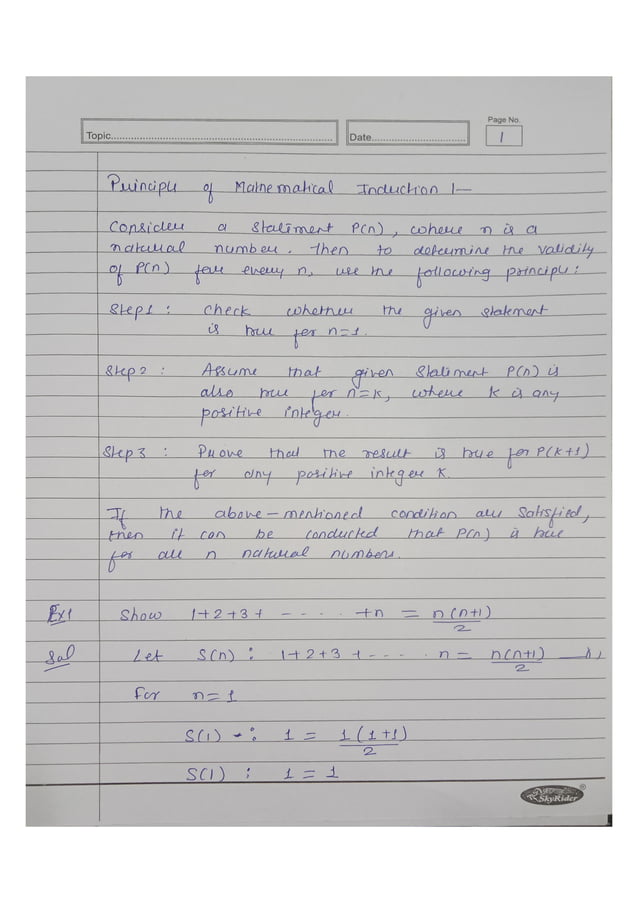 Page No.
Topic.......... Date.......... 1
Principle of Mathematical Induction :-
Consider a statement P(n), where n is a
natural number. Then to determine the validity
of P(n) for every n, use the following principle:
Step 1 : Check whether the given statement
is true for n=1.
Step 2 : Assume that given statement P(n) is
also true for n=k, where k is any
positive integer.
Step 3 : Prove that the result is true for P(k+1)
for any positive integer k.
If the above-mentioned condition are satisfied,
then it can be conducted that P(n) is true
for all n natural numbers.
Ex1 Show 1+2+3+ - - - - . +n = n(n+1)/2
Sol Let S(n) : 1+2+3+ - - - . n = n(n+1)/2
For n=1
S(1) -: 1 = 1(1+1)/2
S(1) : 1 = 1
SkyRider